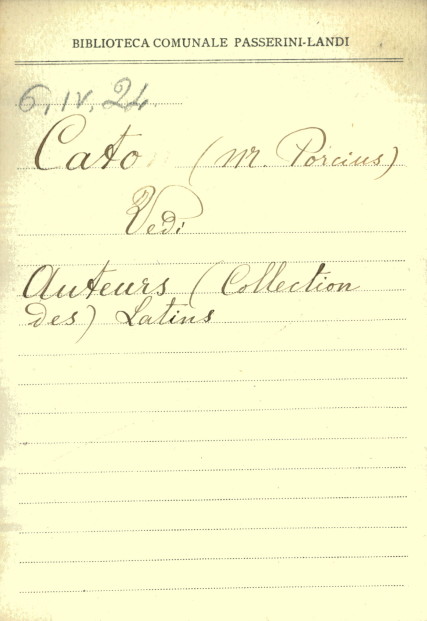 BIBLIOTECA COMUNALE PASSERINI-LANDI
6. IV. 24
Cato (M. Porcius)
Vedi
Auteurs (Collection
des) Latins